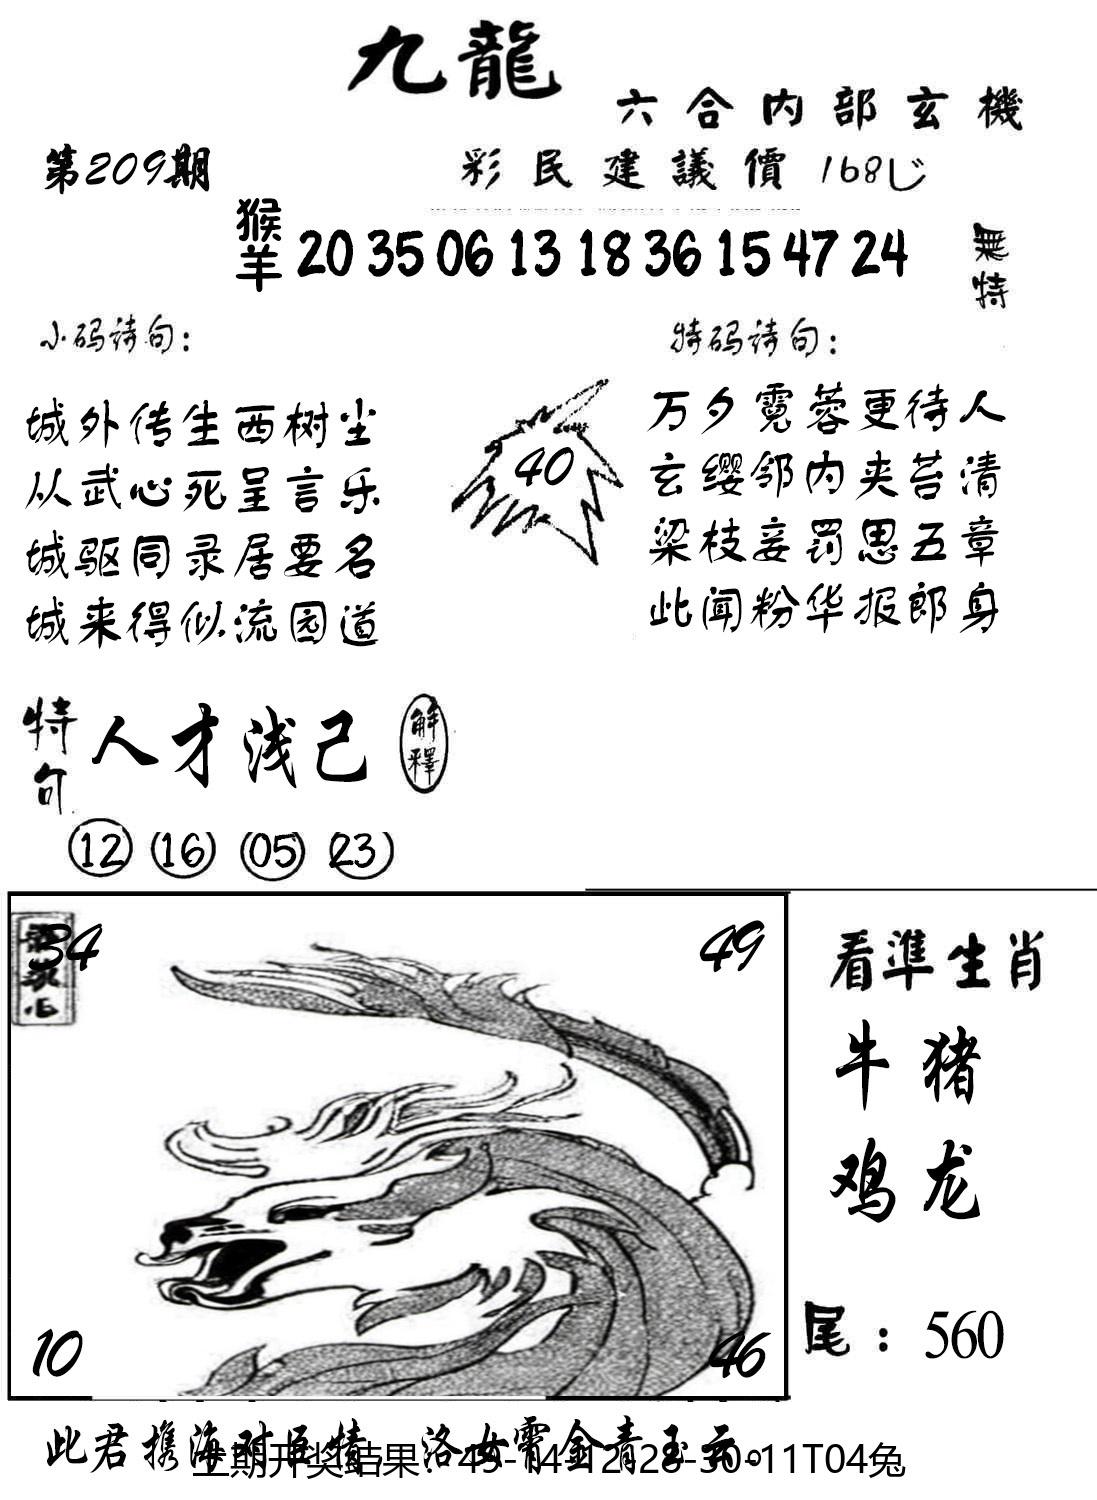 九龍
六合内部玄機
第209期
彩民建議價 168
猴羊 20 35 06 13 18 36 15 47 24
無特
小码诗句：
城外传生西树尘
从武心死呈言乐
城驱同录居要名
城来得似流园道
40
特码诗句：
万夕霓蓉更待人
玄缨邻内夹苔清
梁枝妾罚思五章
此闻粉华报郎身
特句 人才浅己 解釋
12 16 05 23
34
49
10
46
看準生肖
牛猪
鸡龙
尾：560
此君携海对臣情 洛女霄金青玉云。
上期开奖结果：49-14-12-28-30-11T04兔